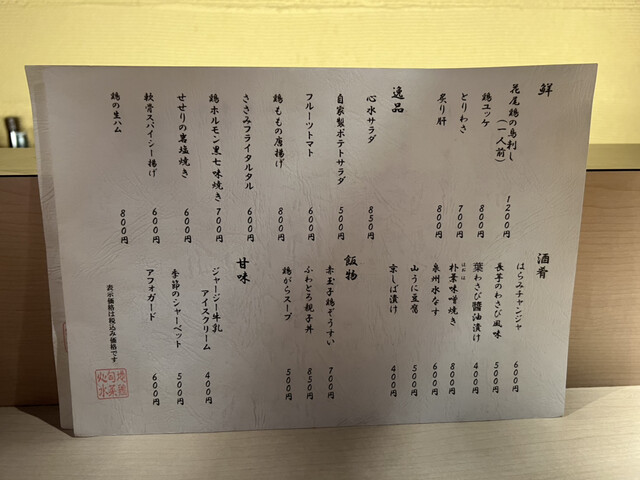 鮮
花尾鶏の鳥刺し
(一人前) 1200円
鶏ユッケ 800円
とりわさ 700円
炙り肝 800円
逸品
心水サラダ 850円
自家製ポテトサラダ 500円
フルーツトマト 600円
鶏ももの唐揚げ 800円
ささみフライタルタル 600円
鶏ホルモン黒七味焼き 700円
せせりの岩塩焼き 600円
軟骨スパイシー揚げ 600円
鶏の生ハム 800円
酒肴
はらみチャンジャ 600円
長芋のわさび風味 500円
葉わさび醬油漬け 400円
朴葉味噌焼き 800円
ほおば
泉州水なす 600円
山うに豆腐 500円
京しば漬け 400円
飯物
赤玉子鶏ぞうすい 700円
ふわとろ親子丼 850円
鶏がらスープ 500円
甘味
ジャージー牛乳
アイスクリーム 400円
季節のシャーベット 500円
アフォガード 600円
表示価格は税込み価格です